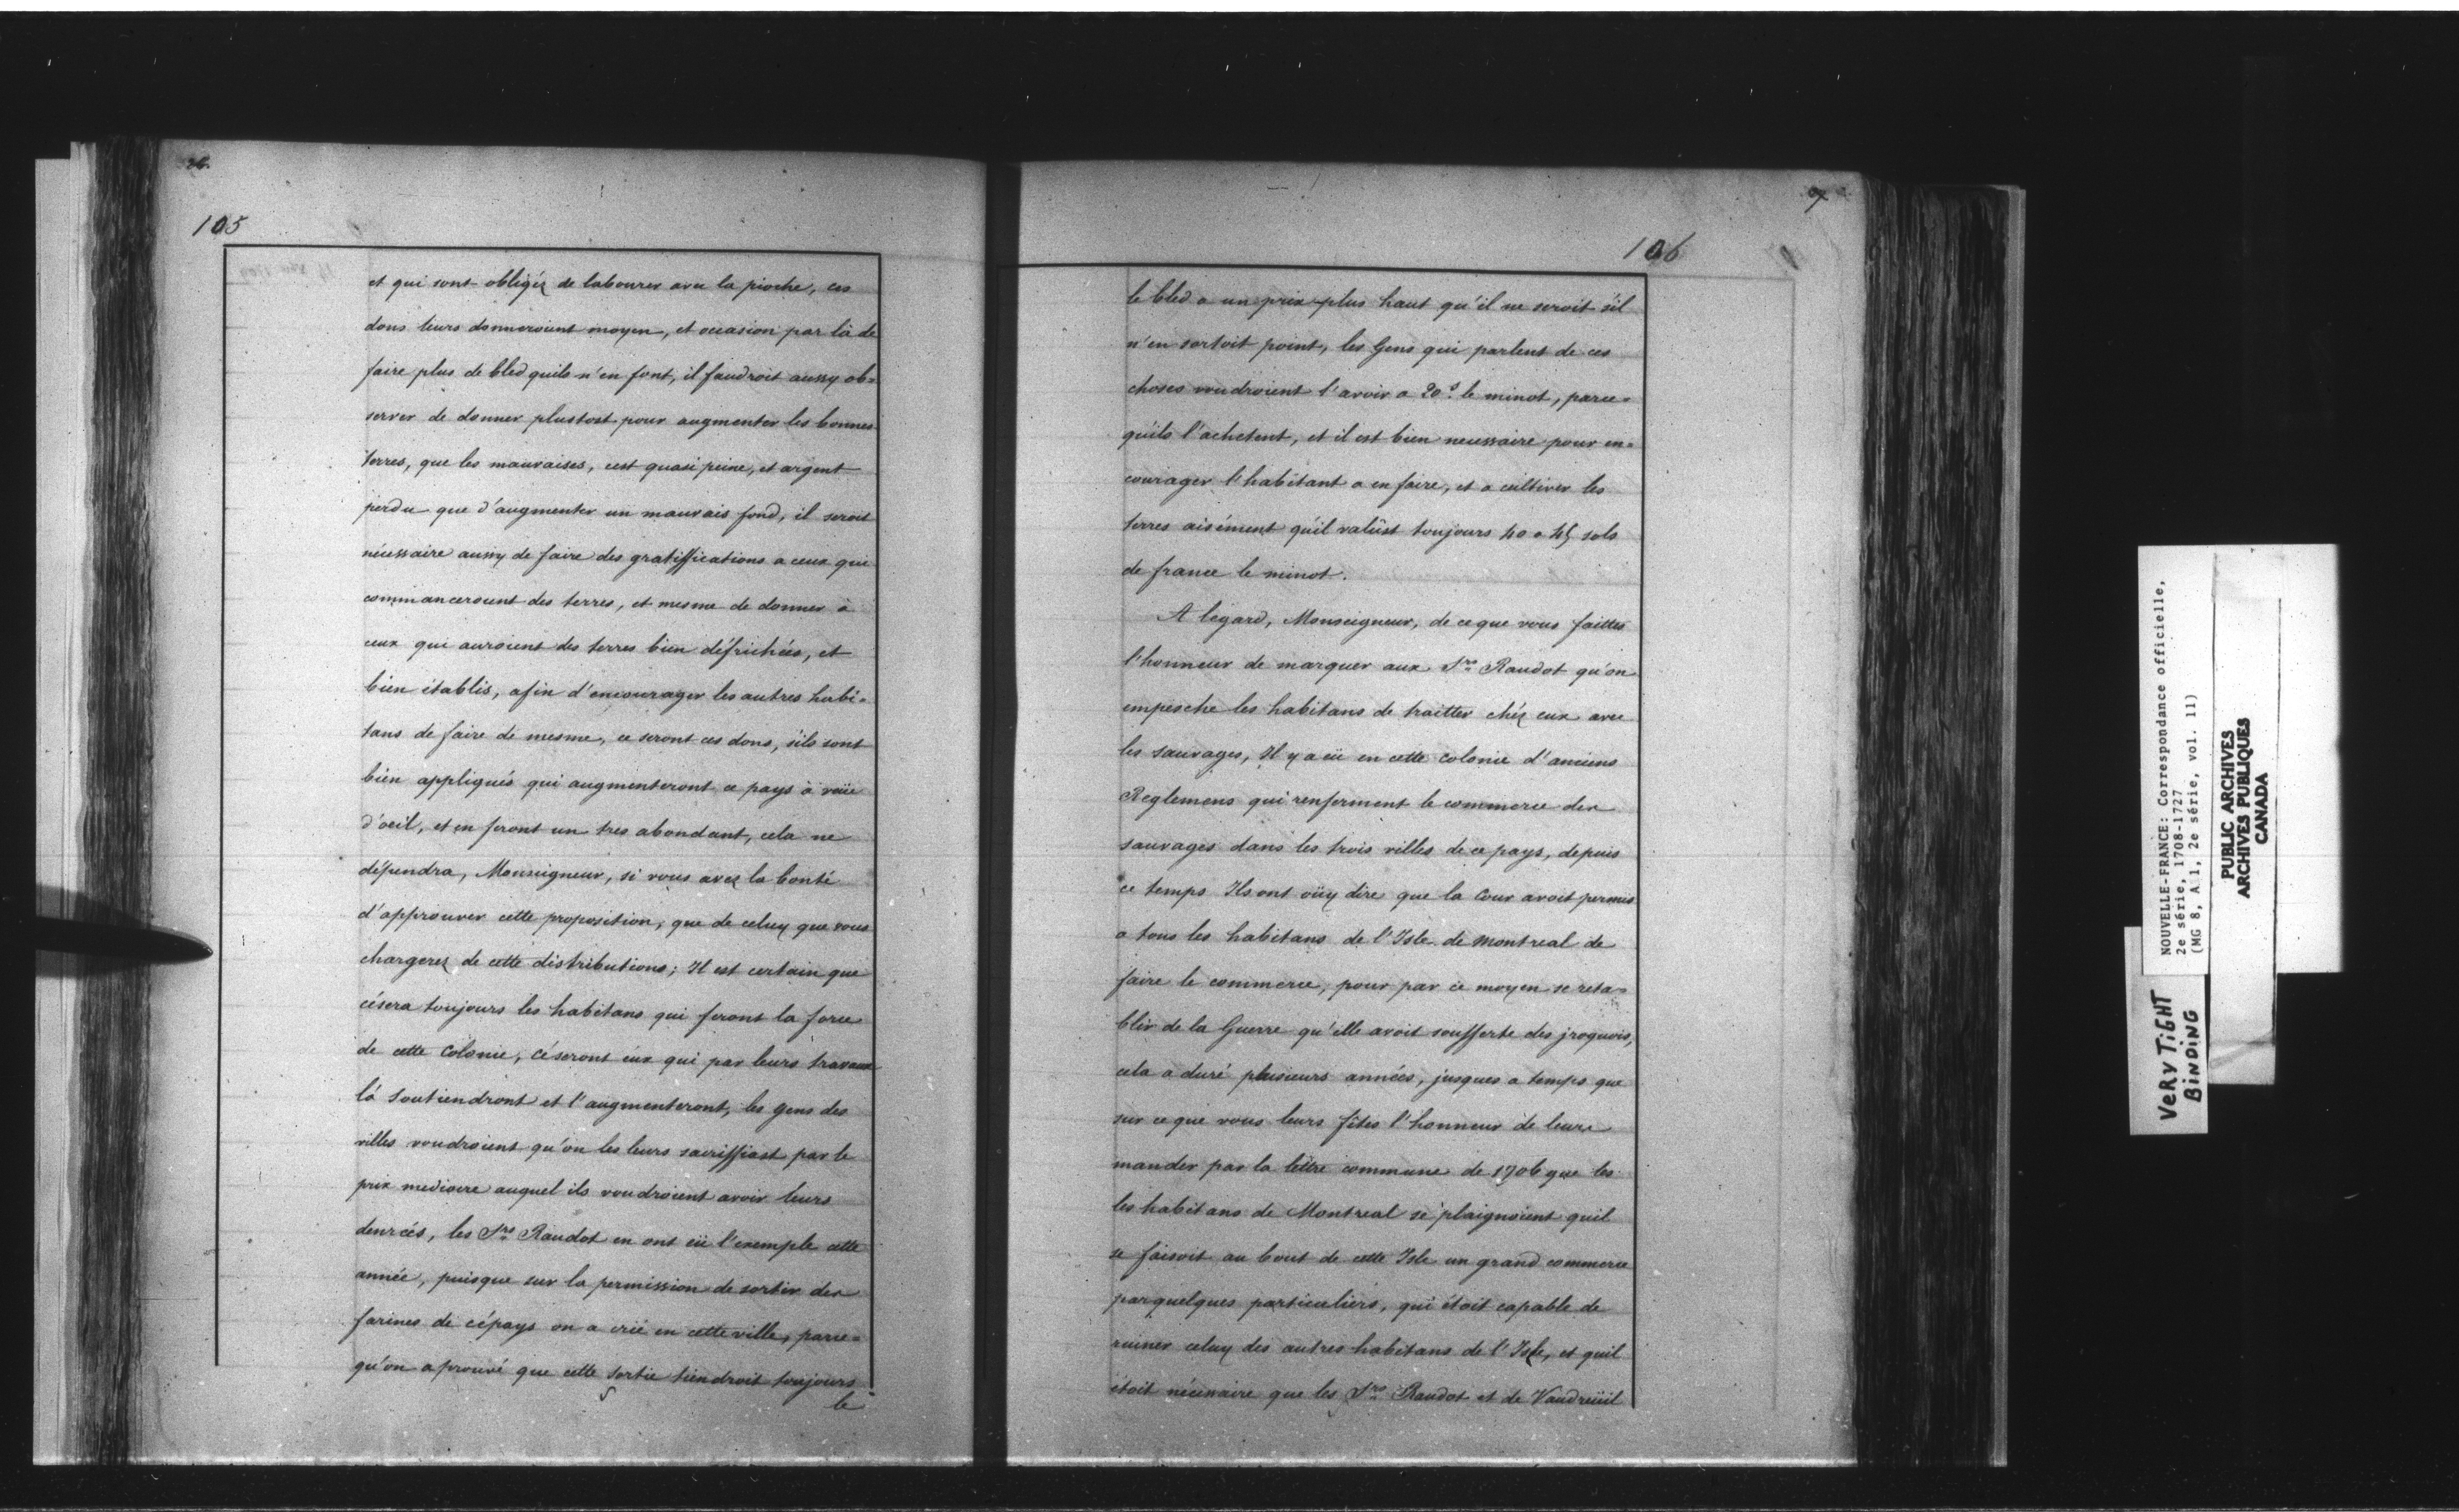 26.
105
et qui sont obligéz de labourer avec la pioche, ces
dons leurs donneroient moyen, et occasion par là de
faire plus de bled quils n'en font, il faudroit aussy ob=
server de donner plustost pour augmenter les bonnes
terres, que les mauvaises, cest quasi peine, et argent
perdu que d'augmenter un mauvais fond, il seroit
nécessaire aussy de faire des gratiffications a ceux qui
commanceroient des terres, et mesme de donner à
ceux qui auroient des terres bien défrichées, et
bien établis, afin d'encourager les autres habi=
tans de faire de mesme, ce seront ces dons, s'ils sont
bien appliqués qui augmenteront ce pays à veüe
d'oeil, et en feront un tres abondant, cela ne
dépendra, Monseigneur, si vous avez la bonté
d'approuver cette proposition, que de celuy que vous
chargerez de cette distributions; Il est certain que
césera toujours les habitans qui feront la force
de cette Colonie, céseront eux qui par leurs travaux
là soutiendront et l'augmenteront, les gens des
villes voudroient qu'on les leurs sacriffiast par le
prix mediocre auquel ils voudroient avoir leurs
denrées, les Srs Raudot en ont eü l'exemple cette
année, puisque sur la permission de sortir des
farines de cépays on a crié en cette ville, parce=
qu'on aprouvé que cette sortie tiendroit toujours
le
106
le bled a un prix plus haut qu'il ne seroit s'il
n'en sortoit point, les Gens qui parlent de ces
choses voudroient l'avoir a 20s le minot, parce=
qu'ils l'achetent, et il est bien necessaire pour en=
courager l'habitant a en faire, et a cultiver les
terres aisément qu'il valüst toujours 40 a 45 sols
de france le minot.
A l'egard, Monseigneur, de ce que vous faittes
l'honneur de marquer aux Srs Raudot qu'on
empesche les habitans de traitter chéz eux avec
les sauvages, Il y a eü en cette colonie d'anciens
Reglemens qui renferment le commerce des
sauvages dans les trois villes de ce pays, depuis
ce temps Ils ont oüy dire que la Cour avoit permis
a tous les habitans de l'Isle de Montreal de
faire le commerce, pour par ce moyen se reta=
blir de la Guerre qu'elle avoit soufferte des jroquois,
cela a duré plusieurs années, jusques a temps que
sur ce que vous leurs fîtes l'honneur de leurs
mander par la lettre commune de 1706 que les
les habitans de Montreal se plaignoient quil
se faisoit au bout de cette Isle un grand commerce
par quelques particuliers, qui étoit capable de
ruiner celuy des autres habitans de l'Isle, et quil
étoit nécessaire que les Srs Raudot et de Vaudreüil
NOUVELLE-FRANCE: Correspondance officielle,
2e série, 1708-1727
(MG 8, A 1, 2e série, vol. 11)
PUBLIC ARCHIVES
ARCHIVES PUBLIQUES
CANADA
VERY TIGHT
BINDING